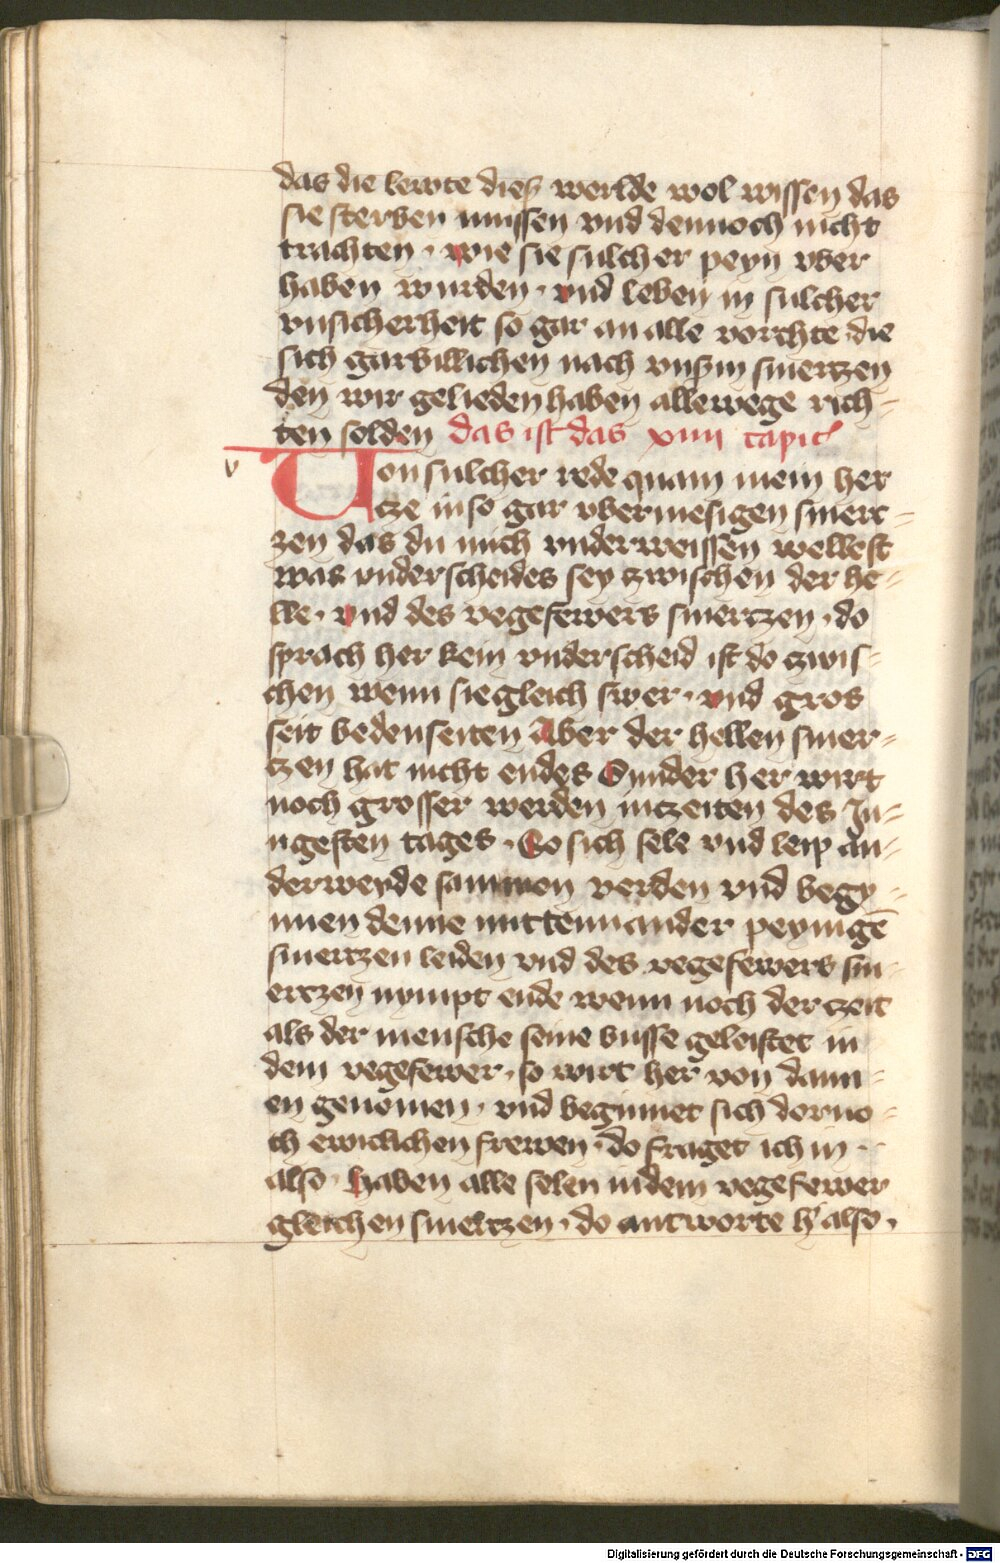 das die lewte dieß werlde wol wissen das
sie sterben mussen vnd dennoch nicht
trachten · wie sie sulcher peyn vber
haben wurden · vnd leben in sulcher
vnsicherheit so gar an alle vorchte die
sich garbillichen nach vnßm smertzen
den wir gelieden haben allewege rich-
ten solden das ist das xiiii capit
v
Von sulcher rede quam mein her
tze in so gar vbermesigen smert-
zen das du mich vnderweissen wellest
was vnderscheides sey czwischen der he-
lle · vnd des vegefewers smertzen · do
sprach her kein vnderscheid ist do czwis-
chen wenn sie gleich swer · vnd gros
seit beden seiten Aber der hellen smer-
tzen hat nicht endes Sunder her wirt
noch grosser werden in czeiten des Ju-
ngesten tages · So sich sele vnd leip an-
derweyde sammen werden vnd begy-
nnen denne mittennander peynigē
smertzen leiden vnd des vegefewers sm-
ertzen nympt ende wenn noch der czeit
als der mensche seine busse geleistet in
dem vegefewer · so wirt her von dann-
en genomen · vnd beginnet sich dorno-
ch ewiclichen frewen · do fraget ich in ·
also · haben alle selen in dem vegefewer
gleichen smeltzen · do antworte h' also ·
Digitalisierung gefördert durch die Deutsche Forschungsgemeinschaft - DFG